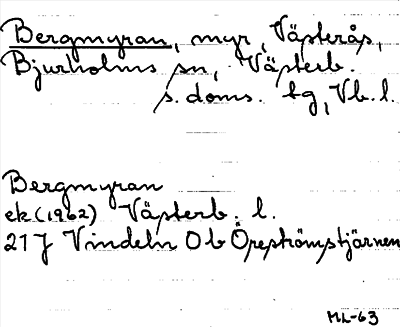 Bergmyran, myr, Västerås,
Bjurholms sn, Västerb.
s. doms. tg, Vb. l.
Bergmyran
ek (1962) Västerb. l.
21J Vindeln 0b Öreströmstjärnen
ML-63